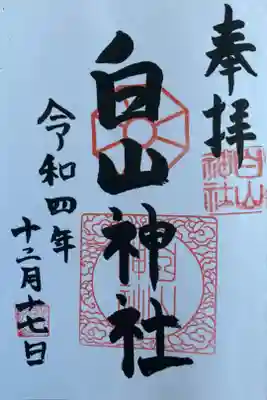 奉拝
白山神社
白山神社
令和四年
十二月十七日